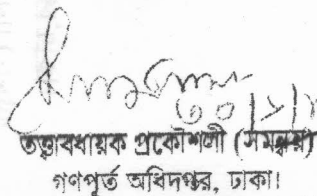 ৩০/১/
তত্ত্বাবধায়ক প্রকৌশলী (সমন্বয়)
গণপূর্ত অধিদপ্তর, ঢাকা।